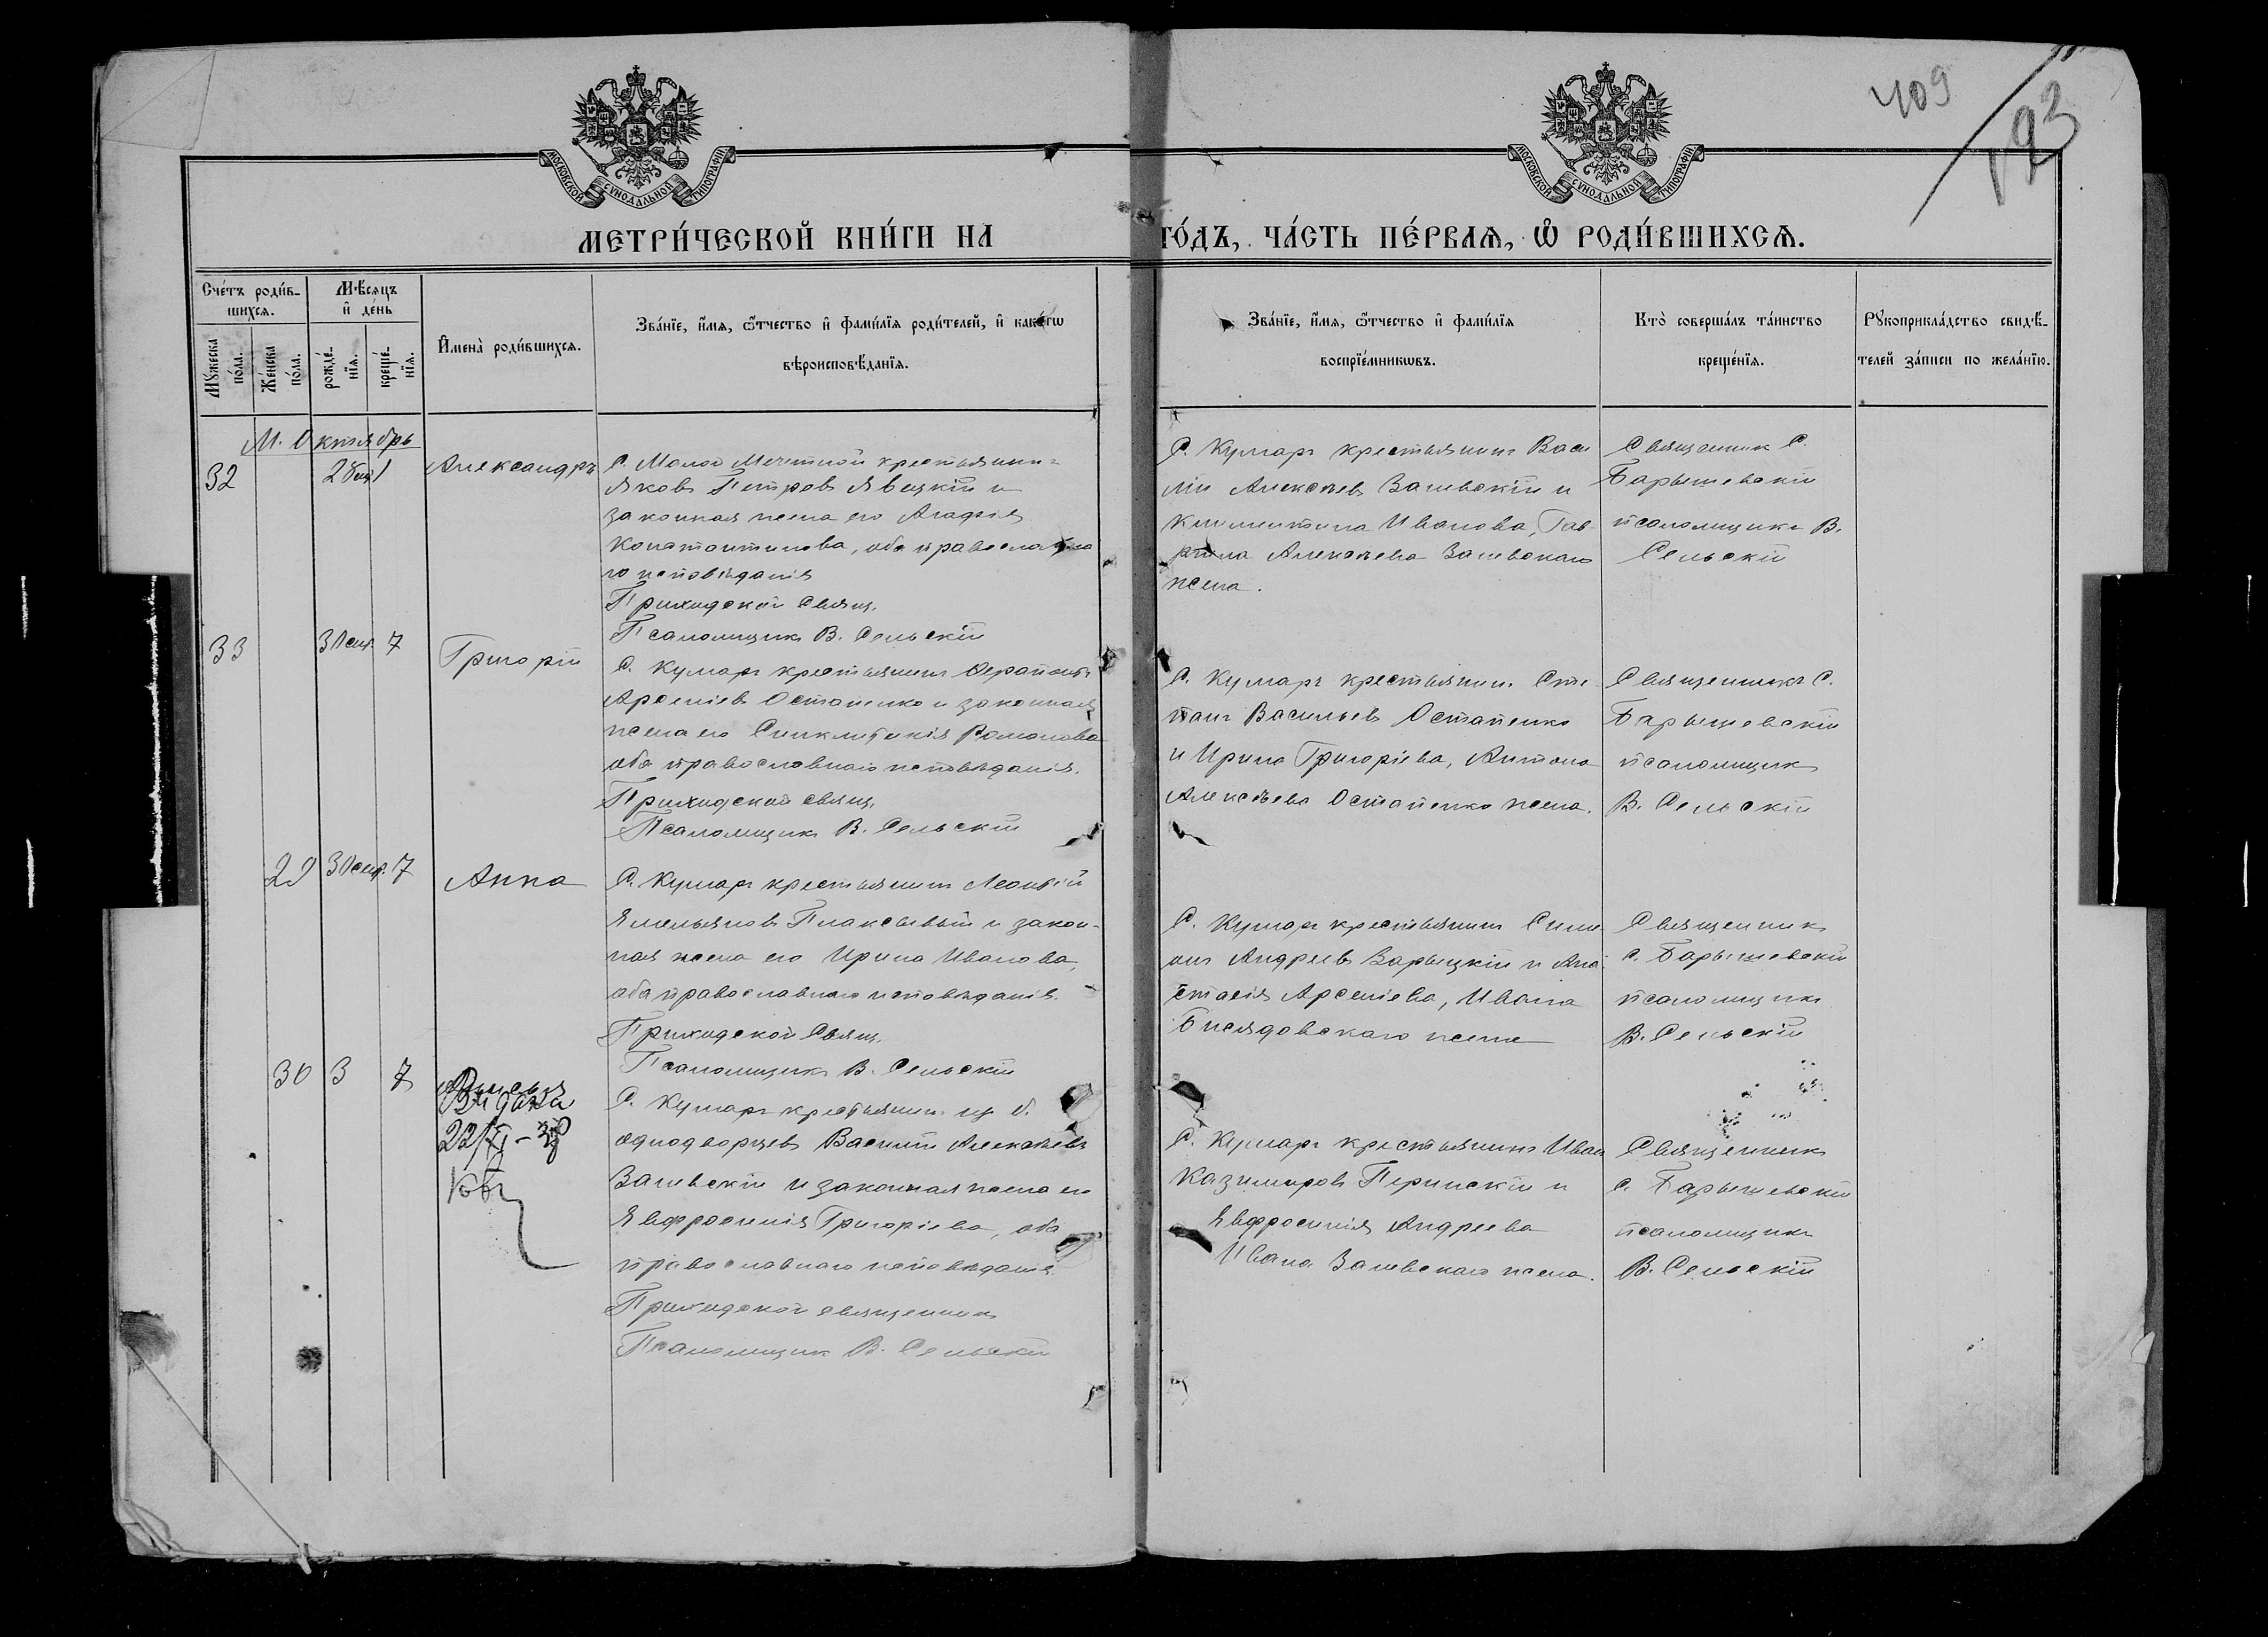 409
193
МОСКОВСКОЙ СѴНОДАЛЬНОЙ ТИПОГРАФІИ
МОСКОВСКОЙ СѴНОДАЛЬНОЙ ТИПОГРАФІИ
МЕТРИ́ЧЕСКОЙ КНИ́ГИ НА
ГО́ДЪ, ЧА́СТЬ ПЕ́РВАѦ, Ѡ҆ РОДИ́ВШИХСѦ.
Сче́тъ роди́в-
шихсѧ.
Мꙋ́жеска
по́ла.
Же́нска
по́ла.
Мѣ́сѧцъ
и҆ де́нь
рожде́-
нїѧ.
креще́-
нїѧ.
И҆мена̀ роди́вшихсѧ.
Зва́нїе, и҆́мѧ, ѻ҆́тчество и҆ фами́лїѧ роди́телей, и҆ како́гѡ
вѣроисповѣ́данїѧ.
Зва́нїе, и҆́мѧ, ѻ҆́тчество и҆ фами́лїѧ
воспрїе́мникѡвъ.
Кто̀ соверша́лъ та́инство
креще́нїѧ.
Рꙋкоприкла́дство свидѣ́-
телей за́писи по жела́нїю.
М. Октябрь
32
1
Александръ
С. Малой Мечетной крестьянинъ
Яковъ Петровъ Явецкій и
законная жена его Агафія
Константинова, оба православна
го исповѣданія
Приходской Свящ.
Псаломщикъ В. Сельскій
С. Кумаръ крестьянинъ Васи
лій Алексѣевъ Залевскій и
Климентина Иванова, Гав
риила Алексѣева Залевскаго
жена.
Священник С.
Барышевскій
псаломщикъ В.
Сельскій
33
30 сен. 7
Григорій
С. Кумаръ крестьянинъ Ферапонтъ
Арсеніевъ Остапенко и законная
жена его Синклитикія Романова
оба православнаго исповѣданія.
Приходской свящ.
Псаломщикъ В. Сельскій
С. Кумаръ крестьянинъ Сте
панъ Васильевъ Остапенко
и Ирина Григоріева, Антона
Алексѣева Остапенко жена.
Священникъ С.
Барышевскій
псаломщикъ
В. Сельскій
29
30 сен. 7
Анна
С. Кумаръ крестьянинъ Леонтій
Ямельяновъ Плаксывый и закон-
ная жена его Ирина Иванова,
оба православнаго исповѣданія.
Приходской Свящ.
Псаломщикъ В. Сельскій
С. Кумаръ крестьянинъ Симе
онъ Андреевъ Зарыцкій и Ана
стасія Арсеніева, Ивана
жена
Священникъ
С. Барышевскій
псаломщикъ
В. Сельскій
30
3
7
Видана
С. Кумаръ крестьянинъ из б.
однодворцевъ Василій Алексѣевъ
Залевскій и законная жена его
Явфросинія Григоріева, оба
православнаго исповѣданія.
Приходской священникъ
Псаломщикъ В. Сельскій
С. Кумаръ крестьянинъ Иван
Казимировъ Перинскій и
Явфросинія Андреева
Ивана Залевскаго жена.
Священникъ
С. Барышевскій
псаломщикъ
В. Сельскій